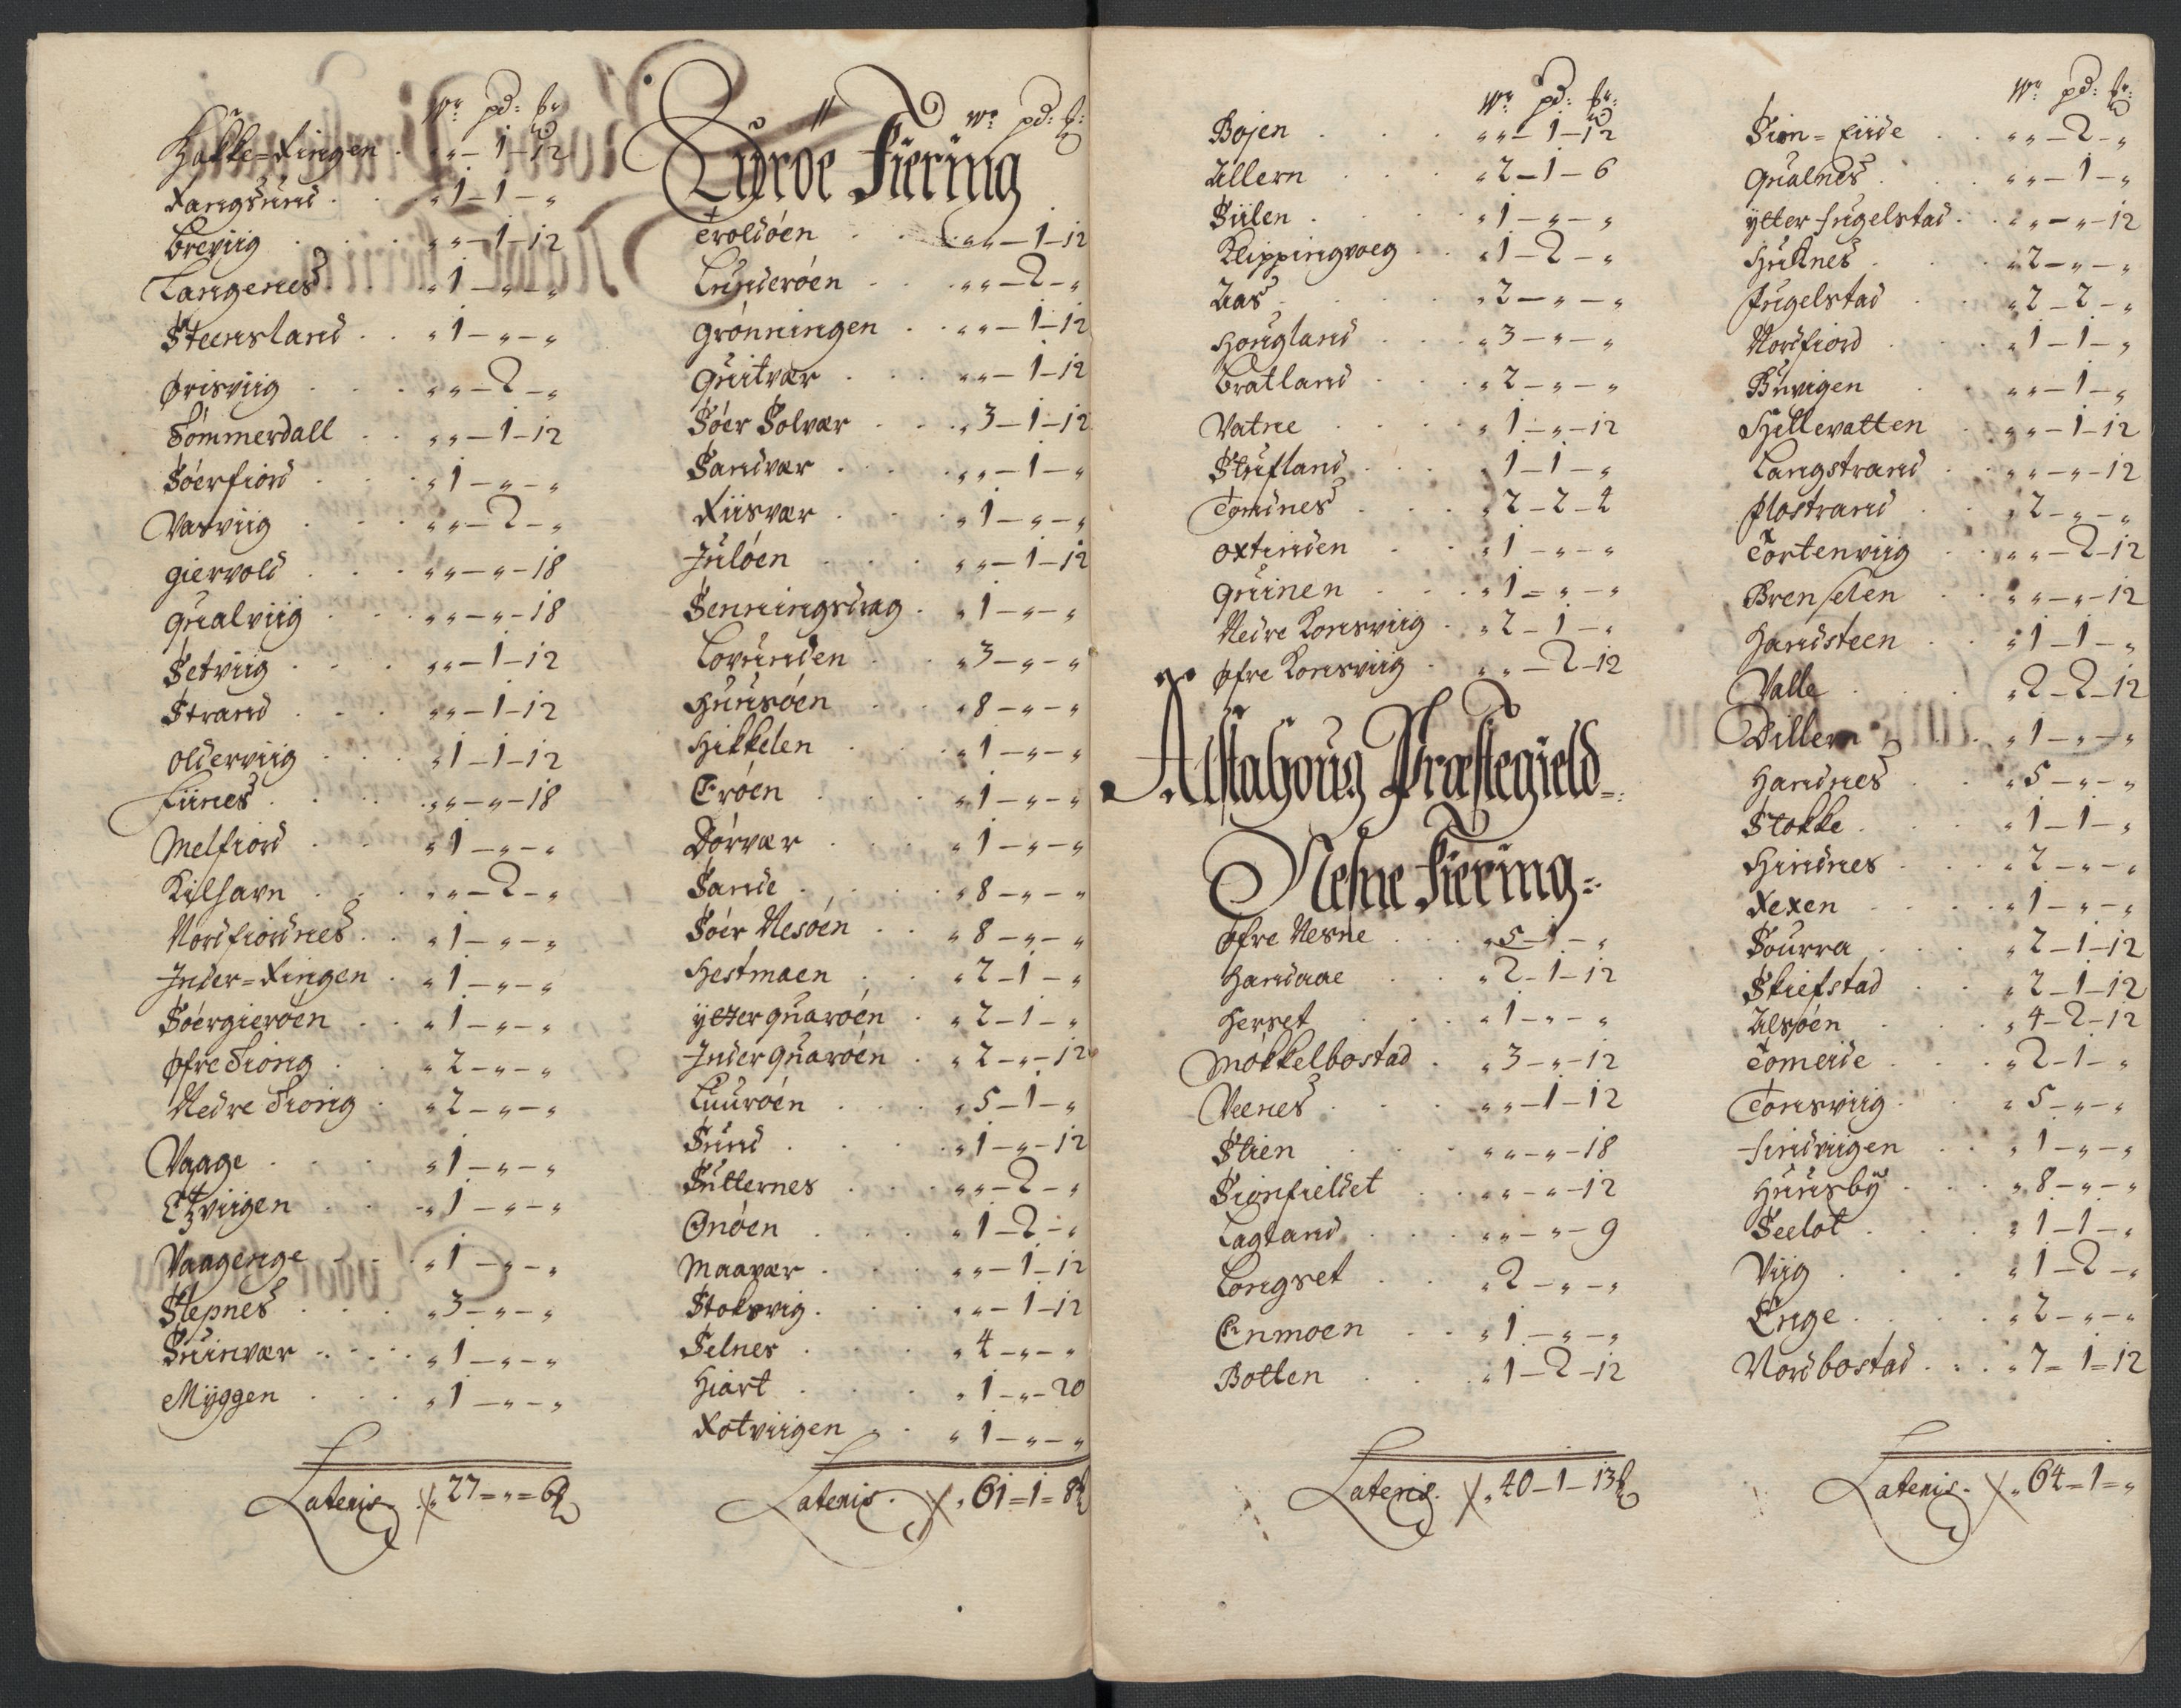 Wr: pd: &r:
Hakke=Ringen „ „ – 1 – 12
Rangsund „ 1 – 1 – „
Breviig „ „ – 1 – 12
Langenes „ 1 – „ – „
Steensland „ 1 – „ – „
Ørisviig „ „ – 2 – „
Sømmerdall „ „ – 1 – 12
Søerfiord „ 1 – „ – „
Vasviig „ „ – 2 – „
Giervold „ „ – „ – 18
Qualviig „ „ – „ – 18
Setviig „ „ – 1 – 12
Strand „ „ – 1 – 12
Olderviig „ 1 – 1 – 12
Fiines „ „ – „ – 18
Melfiord „ 1 – „ – „
Kilhavn „ „ – 2 – „
Nordfiordnes „ 1 – „ – „
Inder=Ringen „ 1 – „ – „
Søergierøen „ 1 – „ – „
Øfre Siong „ 2 – „ – „
Nedre Siong „ 2 – „ – „
Vaage „ 1 – „ – „
Etzviigen „ 1 – „ – „
Vaagenge „ 1 – „ – „
Slepnes „ 3 – „ – „
Suinvær „ 1 – „ – „
Myggen „ 1 – „ – „
Lateris „ 27 = „ = 6
Wr: pd: &r:
Lurøe Fiering
Troldøen „ „ – 1 – 12
Lunderøen „ „ – 2 – „
Grønningen „ „ – 1 – 12
Quitvær „ „ – 1 – 12
Søer Solvær „ 3 – 1 – 12
Sandvær „ „ – 1 – „
Riisvær „ 1 – „ – „
Juløen „ „ – 1 – 12
Senningsdrag „ 1 – „ – „
Lovunden „ 3 – „ – „
Huusøen „ 8 – „ – „
Hikkelen „ 1 – „ – „
Erøen „ 1 – „ – „
Dørvær „ 1 – „ – „
Sande „ 8 – „ – „
Søer Nesøen „ 8 – „ – „
Hestmaen „ 2 – 1 – „
Ytter quarøen „ 2 – 1 – „
Inder quarøen „ 2 – „ – 12
Luurøen „ 5 – 1 – „
Sund „ 1 – „ – 12
Sutternes „ „ – 2 – „
Onøen „ 1 – 2 – „
Maavær „ „ – 1 – 12
Stoksvig „ „ – 1 – 12
Selnes „ 4 – „ – „
Hiart „ 1 – „ – 20
Rotviigen „ 1 – „ – „
Lateris „ 61 = 1 = 8
Wr: pd: &r:
Bojen „ „ – 1 – 12
Ullern „ 2 – 1 – 6
Siilen „ 1 – „ – „
Klippingvoeg „ 1 – 2 – „
Aas „ 2 – „ – „
Hougland „ 3 – „ – „
Bratland „ 2 – „ – „
Vatne „ 1 – „ – 12
Stufland „ 1 – 1 – „
Tomdnes „ 2 – 2 – 2
Oxtinden „ 1 – „ – „
Quinen „ 1 = „ – „
Nedre Konsviig „ 2 – 1 – „
Øfre Konsviig „ „ – 2 – 12
Alstahoug Præstegield=
Nesne Fiering=
Øfre Nesne „ 5 – 1 – „
Handaae „ 2 – 1 – 12
Herset „ 1 – „ – „
Møkkelbostad „ 3 – „ – 12
Veenes „ „ – 1 – 12
Stien „ „ – „ – 18
Sionfieldet „ „ – „ – 12
Lagland „ „ – „ – 9
Longset „ 2 – „ – „
Enmoen „ 1 – „ – „
Botten „ 1 – 2 – 12
Lateris „ 40 – 1 – 13
Wr: pd: &r:
Sion=Eiide „ „ – 2 – „
Qualnes „ „ – 1 – „
Ytter fugelstad „ „ – „ – 12
Huknes „ 2 – „ – „
Fugelstad „ 2 – 2 – „
Nordfiord „ 1 – 1 – „
Buvigen „ „ – 1 – „
Hellevatten „ „ – 1 – 12
Langstrand „ „ – „ – 12
Flostrand „ 2 – „ – „
Tortenviig „ „ – 2 – 12
Brenselen „ „ – „ – 12
Handsteen „ 1 – 1 – „
Valle „ 2 – 2 – 12
Dillern „ 1 – „ – „
Handnes „ 5 – „ – „
Stokke „ 1 – 1 – „
Hindnes „ 2 – „ – „
Rexen „ 1 – „ – „
Sourra „ 2 – 1 – 12
Skiefstad „ 2 – 1 – 12
Alsøen „ 4 – 2 – 12
Tomeide „ 2 – 1 – „
Tonsviig „ 5 – „ – „
Sindviigen „ 1 – „ – „
Huusby „ 8 – „ – „
Seelot „ 1 – 1 – „
Viig „ 1 – 2 – „
Enge „ 2 – „ – „
Nordbostad „ 7 = 1 = 12
Lateris „ 64 = 1 = „